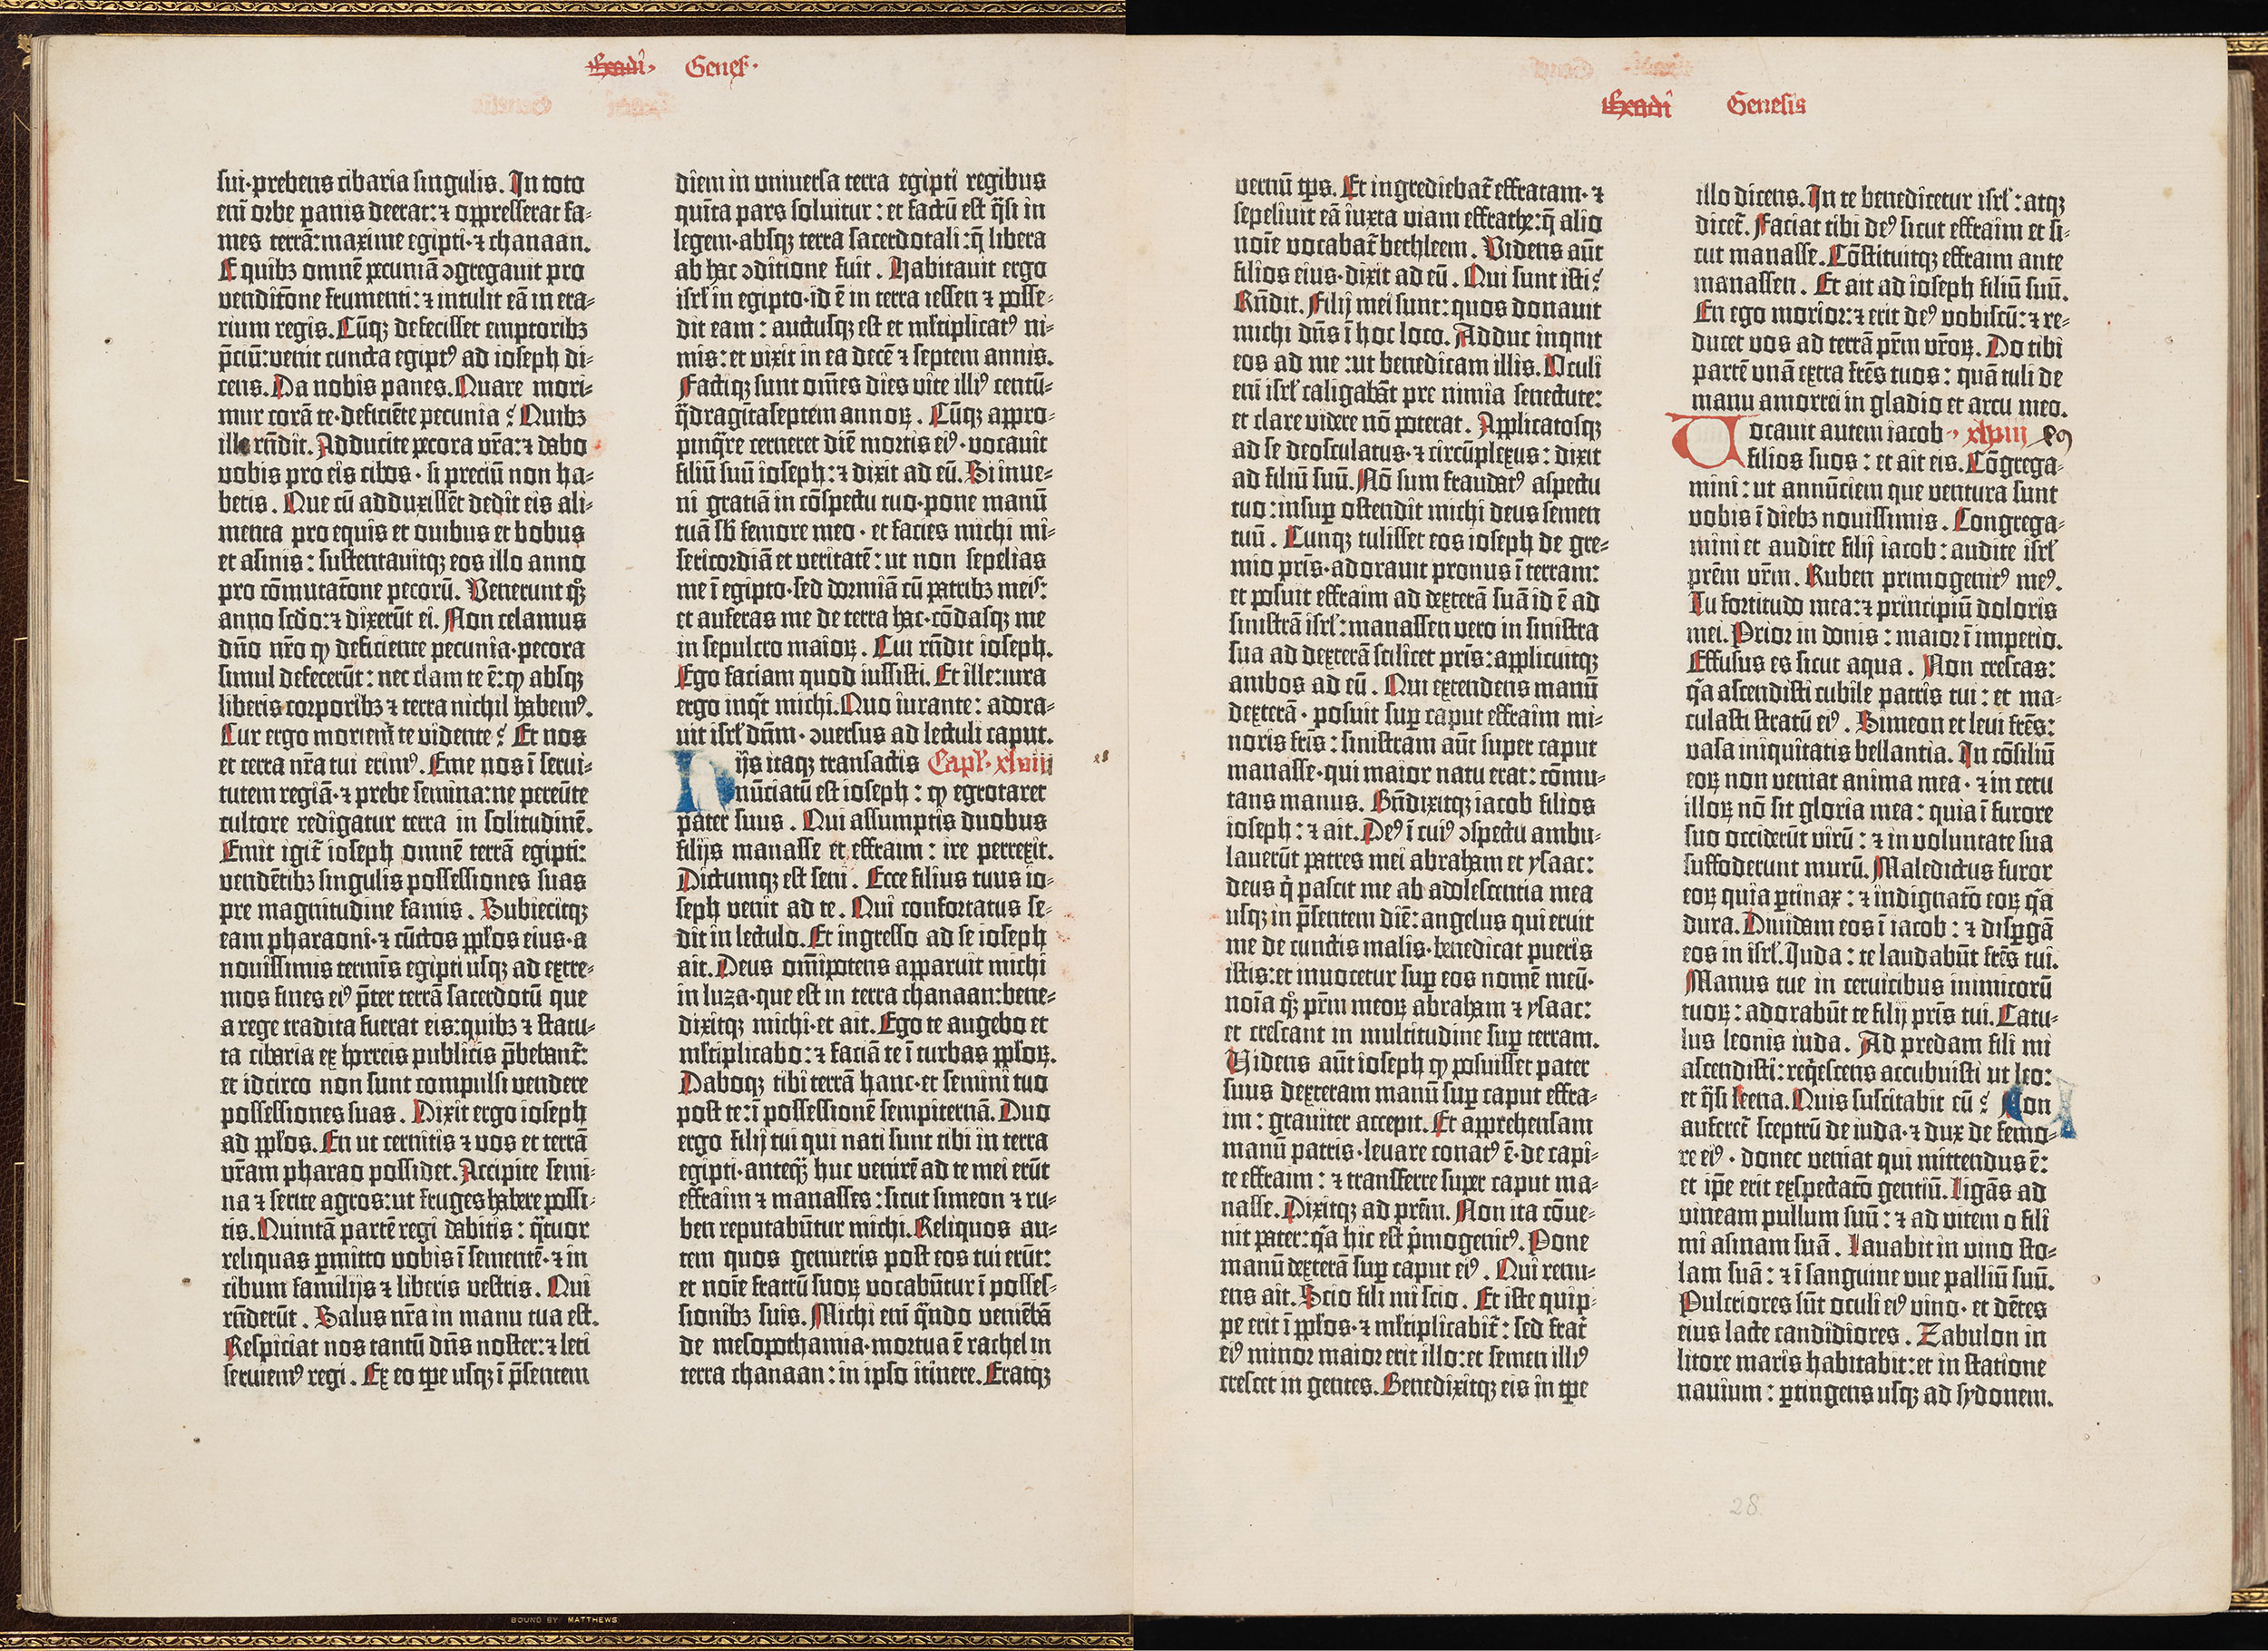 Exodi· Genes·
sui·prebens cibaria singulis. In toto
eni̅ orbe panis deerat:⁊ oppresserat fa-
mes terrā:maxime egipti·⁊ chanaan.
E quibꝫ omnē pecuniā ↄgregauit pro
venditōne frumenti:⁊ intulit eā in era-
rium regis. Cūqꝫ defecisset emptoribꝫ
p̄ciū:venit cuncta egiptꝰ ad ioseph di-
cens. Da nobis panes. Quare mori-
mur corā te·deficiēte pecunia? Quibꝫ
ille rn̄dit. Adducite pecora vr̄a:⁊ dabo
vobis pro eis cibos· si preciū non ha-
betis. Que cū adduxissēt dedit eis ali-
menta pro equis et ouibus et bobus
et asinis: sustentauitqꝫ eos illo anno
pro cōmutatōne pecorū. Venerunt qͦꝫ
anno scdo:⁊ dixerūt ei. Non celamus
dn̄o nr̄o ꝙ deficiente pecunia·pecora
simul defecerūt: nec clam te ē:ꝙ absqꝫ
liberis corporibꝫ ⁊ terra nichil habemꝰ.
Cur ergo moriemr̄ te vidente? Et nos
et terra nr̄a tui erimꝰ. Eme nos ī serui-
tutem regiā·⁊ prebe semina:ne pereūte
cultore redigatur terra in solitudinē.
Emit igit̄ ioseph omnē terrā egipti:
vendētibꝫ singulis possessiones suas
pre magnitudine famis. Subiecitqꝫ
eam pharaoni·⁊ cūctos pp̄los eius·a
nouissimis termis egipti usqꝫ ad extre-
mos fines eiꝰ p̄ter terrā sacerdotū que
a rege tradita fuerat eis:quibꝫ ⁊ statu-
ta cibaria ex horreis publicis p̄bebant̄:
et idcirco non sunt compulsi vendere
possessiones suas. Dixit ergo ioseph
ad pp̄los. En ut cernitis ⁊ vos et terrā
vr̄am pharao possidet. Accipite semi-
na ⁊ serite agros:ut fruges habere possi-
tis. Quintā partē regi dabitis: q̄tuor
reliquas ꝑmitto vobis ī sementē·⁊ in
cibum familijs ⁊ liberis vestris. Qui
rn̄derūt. Salus nr̄a in manu tua est.
Respiciat nos tantū dn̄s noster:⁊ leti
seruiemꝰ regi. Ex eo tp̄e usqꝫ ī p̄sentem
diem in vniuersa terra egipti regibus
quīta pars soluitur: et factū est q̄si in
legem·absqꝫ terra sacerdotali:q̄ libera
ab hac ↄditione fuit. Habitauit ergo
isrl̄ in egipto·id ē in terra iessen ⁊ posse-
dit eam: auctusqꝫ est et ml̄tiplicatꝰ ni-
mis: et vixit in ea decē ⁊ septem annis.
Factiqꝫ sunt om̄es dies vite illiꝰ centū-
q̄dragītaseptem annoꝝ. Cūqꝫ appro-
pinq̄re cerneret diē mortis eiꝰ·vocauit
filiū suū ioseph:⁊ dixit ad eū. Si inue-
ni gratiā in cōspectu tuo·pone manū
tuā sb̄ femore meo· et facies michi mi-
sericordiā et veritatē: ut non sepelias
me ī egipto·sed dormiā cū patribꝫ meis:
et auferas me de terra hac·cōdasqꝫ me
in sepulcro maioꝝ. Cui rn̄dit ioseph.
Ego faciam quod iussisti. Et ille:iura
ergo inqt̄ michi. Quo iurante: adora-
uit isrl̄ dn̄m· ↄuersus ad lectuli caput.
Hijs itaqꝫ transactis Capl̄· xlviii
nūciatū est ioseph: ꝙ egrotaret
pater suus. Qui assumptis duobus
filijs manasse et effraim: ire perrexit.
Dictumqꝫ est seni. Ecce filius tuus io-
seph venit ad te. Qui confortatus se-
dit in lectulo. Et ingresso ad se ioseph
ait. Deus om̄ipotens apparuit michi
in luza·que est in terra chanaan:bene-
dixitqꝫ michi·et ait. Ego te augebo et
ml̄tiplicabo:⁊ faciā te ī turbas pp̄loꝝ.
Daboqꝫ tibi terrā hanc·et semini tuo
post te:ī possessionē sempiternā. Duo
ergo filij tui qui nati sunt tibi in terra
egipti·anteq̄ꝫ huc venirē ad te mei erūt
effraim ⁊ manasses: sicut simeon ⁊ ru-
ben reputabūtur michi. Reliquos au-
tem quos genueris post eos tui erūt:
et noīe fratrū suoꝝ vocabūtur ī posses-
sionibꝫ suis. Michi eni̅ q̄ndo veniebā
de mesopothamia·mortua ē rachel in
terra chanaan: in ipso itinere. Eratqꝫ
Exodi Genesis
vernū tp̄s. Et ingrediebar̄ effratam·⁊
sepeliuit eā iuxta viam effrathe:q̄ alio
noīe vocabat̄ bethleem. Videns aūt
filios eius·dixit ad eū. Qui sunt isti?
Rn̄dit. Filij mei sunt: quos donauit
michi dn̄s ī hoc loco. Adduc inquit
eos ad me:ut benedicam illis. Oculi
eni̅ isrl̄ caligabāt pre nimia senectute:
et clare videre nō poterat. Applicatosqꝫ
ad se deosculatus·⁊ circūplexus: dixit
ad filiū suū. Nō sum fraudatꝰ aspectu
tuo: insuꝑ ostendit michi deus semen
tuū. Cunqꝫ tulisset eos ioseph de gre-
mio pr̄is·adorauit pronus ī terram:
et posuit effraim ad dexterā suā id ē ad
sinistrā isrl̄: manassen vero in sinistra
sua ad dexterā scilicet pr̄is: applicuitqꝫ
ambos ad eū. Qui extendens manū
dexterā· posuit suꝑ caput effraim mi-
noris fr̄is: sinistram aūt super caput
manasse·qui maior natu erat: cōmu-
tans manus. Bn̄dixitqꝫ iacob filios
ioseph: ⁊ ait. Deꝰ ī cuiꝰ ↄspectu ambu-
lauerūt patres mei abraham et ysaac:
deus q̄ pascit me ab adolescentia mea
usqꝫ in p̄sentem diē: angelus qui eruit
me de cunctis malis·benedicat pueris
istis:et inuocetur suꝑ eos nomē meū·
noīa qͦꝫ pr̄m meoꝝ abraham ⁊ ysaac:
et crescant in multitudine suꝑ terram.
Videns aūt ioseph ꝙ posuisset pater
suus dexteram manū suꝑ caput effra-
im: grauiter accepit. Et apprehensam
manū patris·leuare conatꝰ ē·de capi-
te effraim: ⁊ transferre super caput ma-
nasse. Dixitqꝫ ad pr̄em. Non ita cōue-
nit pater:q̄a hic est p̄mogenitꝰ. Pone
manū dexterā suꝑ caput eiꝰ. Qui renu-
ens ait. Scio fili mi scio. Et iste quip-
pe erit ī pp̄los·⁊ ml̄tiplicabit̄: sed frat̄
eiꝰ minor maior erit illo:et semen illiꝰ
crescet in gentes. Benedixitqꝫ eis in tp̄e
illo dicens. In te benedicetur isrl̄: atqꝫ
dicet̄. Faciat tibi deꝰ sicut effraim et si-
cut manasse. Cōstituitqꝫ effraim ante
manassen. Et ait ad ioseph filiū suū.
En ego morior:⁊ erit deꝰ vobiscū:⁊ re-
ducet vos ad terrā pr̄m vr̄oꝝ. Do tibi
partē vnā extra fr̄es tuos: quā tuli de
manu amorrei in gladio et arcu meo.
Vocauit autem iacob· xlviiij 49
filios suos: et ait eis. Cōgrega-
mini: ut annūciem que ventura sunt
vobis ī diebꝫ nouissimis. Congrega-
mini et audite filij iacob: audite isrl̄
pr̄em vr̄m. Ruben primogenitꝰ meꝰ.
Tu fortitudo mea:⁊ principiū doloris
mei. Prior in donis: maior ī imperio.
Effusus es sicut aqua. Non crescas:
q̄a ascendisti cubile patris tui: et ma-
culasti stratū eiꝰ. Simeon et leui fr̄es:
vasa iniquitatis bellantia. In cōsiliū
eoꝝ non veniat anima mea· ⁊ in cetu
illoꝝ nō sit gloria mea: quia ī furore
suo occiderūt virū: ⁊ in voluntate sua
suffoderunt murū. Maledictus furor
eoꝝ quia ꝑtinax: ⁊ indignatō eoꝝ q̄a
dura. Diuidam eos ī iacob: ⁊ disꝑgā
eos in isrl̄. Iuda: te laudabūt fr̄es tui.
Manus tue in ceruicibus inimicorū
tuoꝝ: adorabūt te filij pr̄is tui. Catu-
lus leonis iuda. Ad predam fili mi
ascendisti: req̄escens accubuisti ut leo:
et q̄si leena. Quis suscitabit eū? Non
auferet̄ sceptrū de iuda·⁊ dux de femo-
re eiꝰ· donec veniat qui mittendus ē:
et ip̄e erit exspectatō gentiū. Ligās ad
vineam pullum suū: ⁊ ad vitem o fili
mi asinam suā. Lauabit in vino sto-
lam suā: ⁊ ī sanguine vue palliū suū.
Pulcriores sūt oculi eiꝰ vino· et dētes
eius lacte candidiores. Zabulon in
litore maris habitabit:et in statione
nauium: ꝑtingens usqꝫ ad sydonem.
28
BOUND BY MATTHEWS